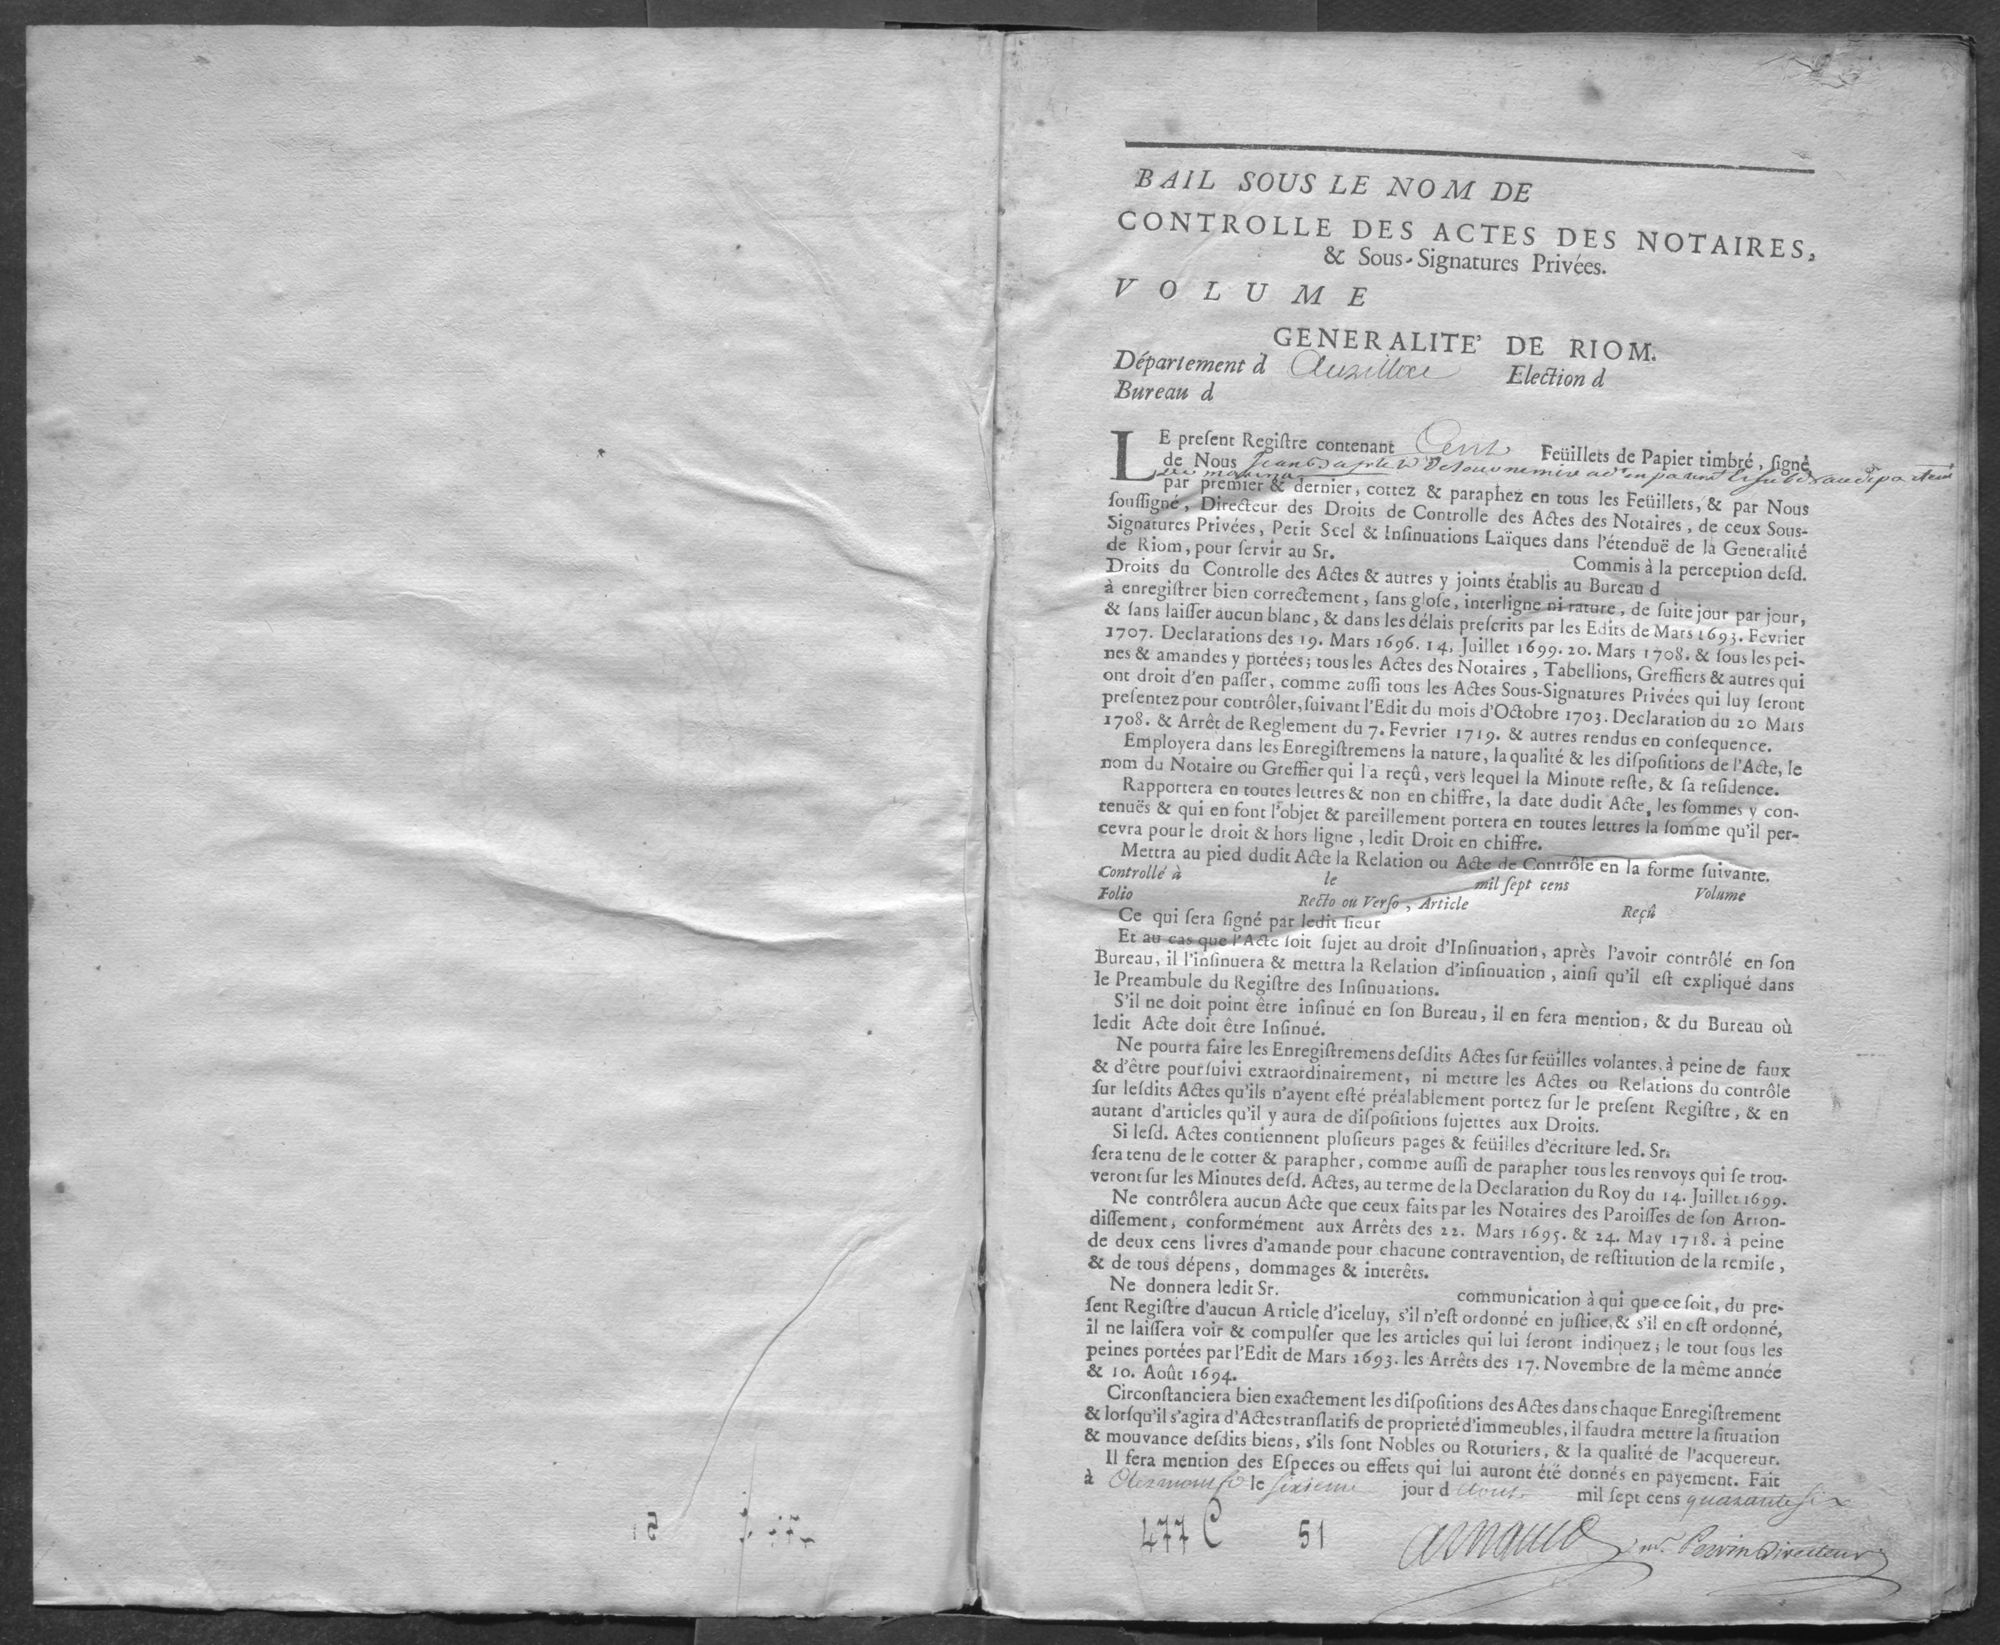 BAIL SOUS LE NOM DE
CONTROLLE DES ACTES DES NOTAIRES,
& Sous-Signatures Privées.
VOLUME
GENERALITE' DE RIOM.
Département d Aurillac Election d
Bureau d
LE preſent Regiſtre contenant Cent Feüillets de Papier timbré, ſigné
de Nous Jean
par premier & dernier, cottez & paraphez en tous les Feüillets, & par Nous
ſouſſigné, Directeur des Droits de Controlle des Actes des Notaires, de ceux Sous-
Signatures Privées, Petit Scel & Inſinuations Laïques dans l'étenduë de la Generalité
de Riom, pour ſervir au Sr. Commis à la perception deſd.
Droits du Controlle des Actes & autres y joints établis au Bureau d
à enregiſtrer bien correctement, ſans gloſe, interligne ni rature, de ſuite jour par jour,
& ſans laiſſer aucun blanc, & dans les délais preſcrits par les Edits de Mars 1693. Fevrier
1707. Declarations des 19. Mars 1696. 14. Juillet 1699. 20. Mars 1708. & ſous les pei-
nes & amandes y portées; tous les Actes des Notaires, Tabellions, Greffiers & autres qui
ont droit d'en paſſer, comme auſſi tous les Actes Sous-Signatures Privées qui luy ſeront
preſentez pour contrôler, ſuivant l'Edit du mois d'Octobre 1703. Declaration du 20 Mars
1708. & Arrêt de Reglement du 7. Fevrier 1719. & autres rendus en conſequence.
Employera dans les Enregiſtremens la nature, la qualité & les diſpoſitions de l'Acte, le
nom du Notaire ou Greffier qui l'a reçû, vers lequel la Minute reſte, & ſa reſidence.
Rapportera en toutes lettres & non en chiffre, la date dudit Acte, les ſommes y con-
tenuës & qui en font l'objet & pareillement portera en toutes lettres la ſomme qu'il per-
cevra pour le droit & hors ligne, ledit Droit en chiffre.
Mettra au pied dudit Acte la Relation ou Acte de Contrôle en la forme ſuivante.
Controllé à le mil ſept cens Volume
Folio Recto ou Verſo, Article Reçû
Ce qui ſera ſigné par ledit ſieur
Et au cas que l'Acte ſoit ſujet au droit d'Inſinuation, après l'avoir contrôlé en ſon
Bureau, il l'inſinuera & mettra la Relation d'inſinuation, ainſi qu'il eſt expliqué dans
le Preambule du Regiſtre des Inſinuations.
S'il ne doit point être inſinué en ſon Bureau, il en ſera mention, & du Bureau où
ledit Acte doit être Inſinué.
Ne pourra faire les Enregiſtremens deſdits Actes ſur feüilles volantes, à peine de faux
& d'être pourſuivi extraordinairement, ni mettre les Actes ou Relations du contrôle
ſur leſdits Actes qu'ils n'ayent eſté préalablement portez ſur le preſent Regiſtre, & en
autant d'articles qu'il y aura de diſpoſitions ſujettes aux Droits.
Si leſd. Actes contiennent pluſieurs pages & feüilles d'écriture led. Sr.
ſera tenu de le cotter & parapher, comme auſſi de parapher tous les renvoys qui ſe trou-
veront ſur les Minutes deſd. Actes, au terme de la Declaration du Roy du 14. Juillet 1699.
Ne contrôlera aucun Acte que ceux faits par les Notaires des Paroiſſes de ſon Arron-
diſſement, conformément aux Arrêts des 22. Mars 1695. & 24. May 1718. à peine
de deux cens livres d'amande pour chacune contravention, de reſtitution de la remiſe,
& de tous dépens, dommages & interêts.
Ne donnera ledit Sr. communication à qui que ce ſoit, du pre-
ſent Regiſtre d'aucun Article d'iceluy, s'il n'eſt ordonné en juſtice, & s'il en eſt ordonné,
il ne laiſſera voir & compulſer que les articles qui lui ſeront indiquez; le tout ſous les
peines portées par l'Edit de Mars 1693. les Arrêts des 17. Novembre de la même année
& 10. Août 1694.
Circonſtanciera bien exactement les diſpoſitions des Actes dans chaque Enregiſtrement
& lorſqu'il s'agira d'Actes tranſlatifs de proprieté d'immeubles, il faudra mettre la ſituation
& mouvance deſdits biens, s'ils ſont Nobles ou Roturiers, & la qualité de l'acquereur.
Il ſera mention des Eſpeces ou effets qui lui auront été donnés en payement. Fait
à Clermont le ſixieme jour d Aout mil ſept cens quarante ſix
477 C 51 Arnaud Perrin Directeur